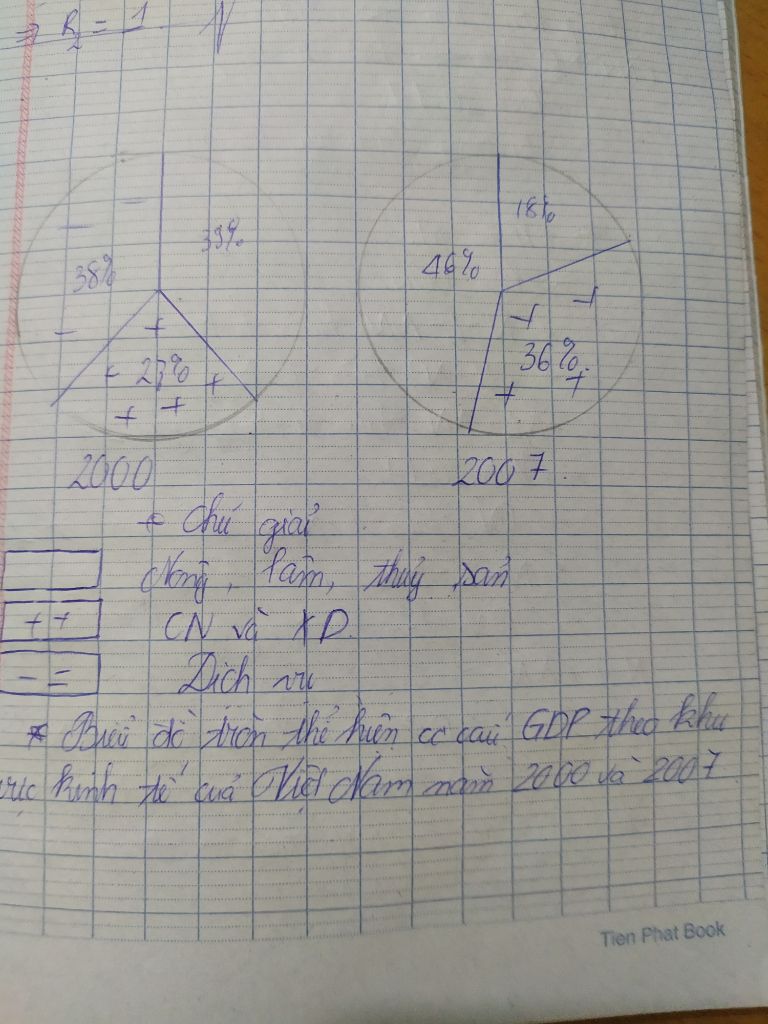 ⇒ R₂ = 1 N
39%
38%
23%
18%
46%
36%
2000
2007
+ Chú giải
Nông, lâm, thuỷ sản
++ CN và XD
- = Dịch vụ
* Biểu đồ tròn thể hiện cơ cấu GDP theo khu
vực kinh tế của Việt Nam năm 2000 và 2007
Tien Phat Book